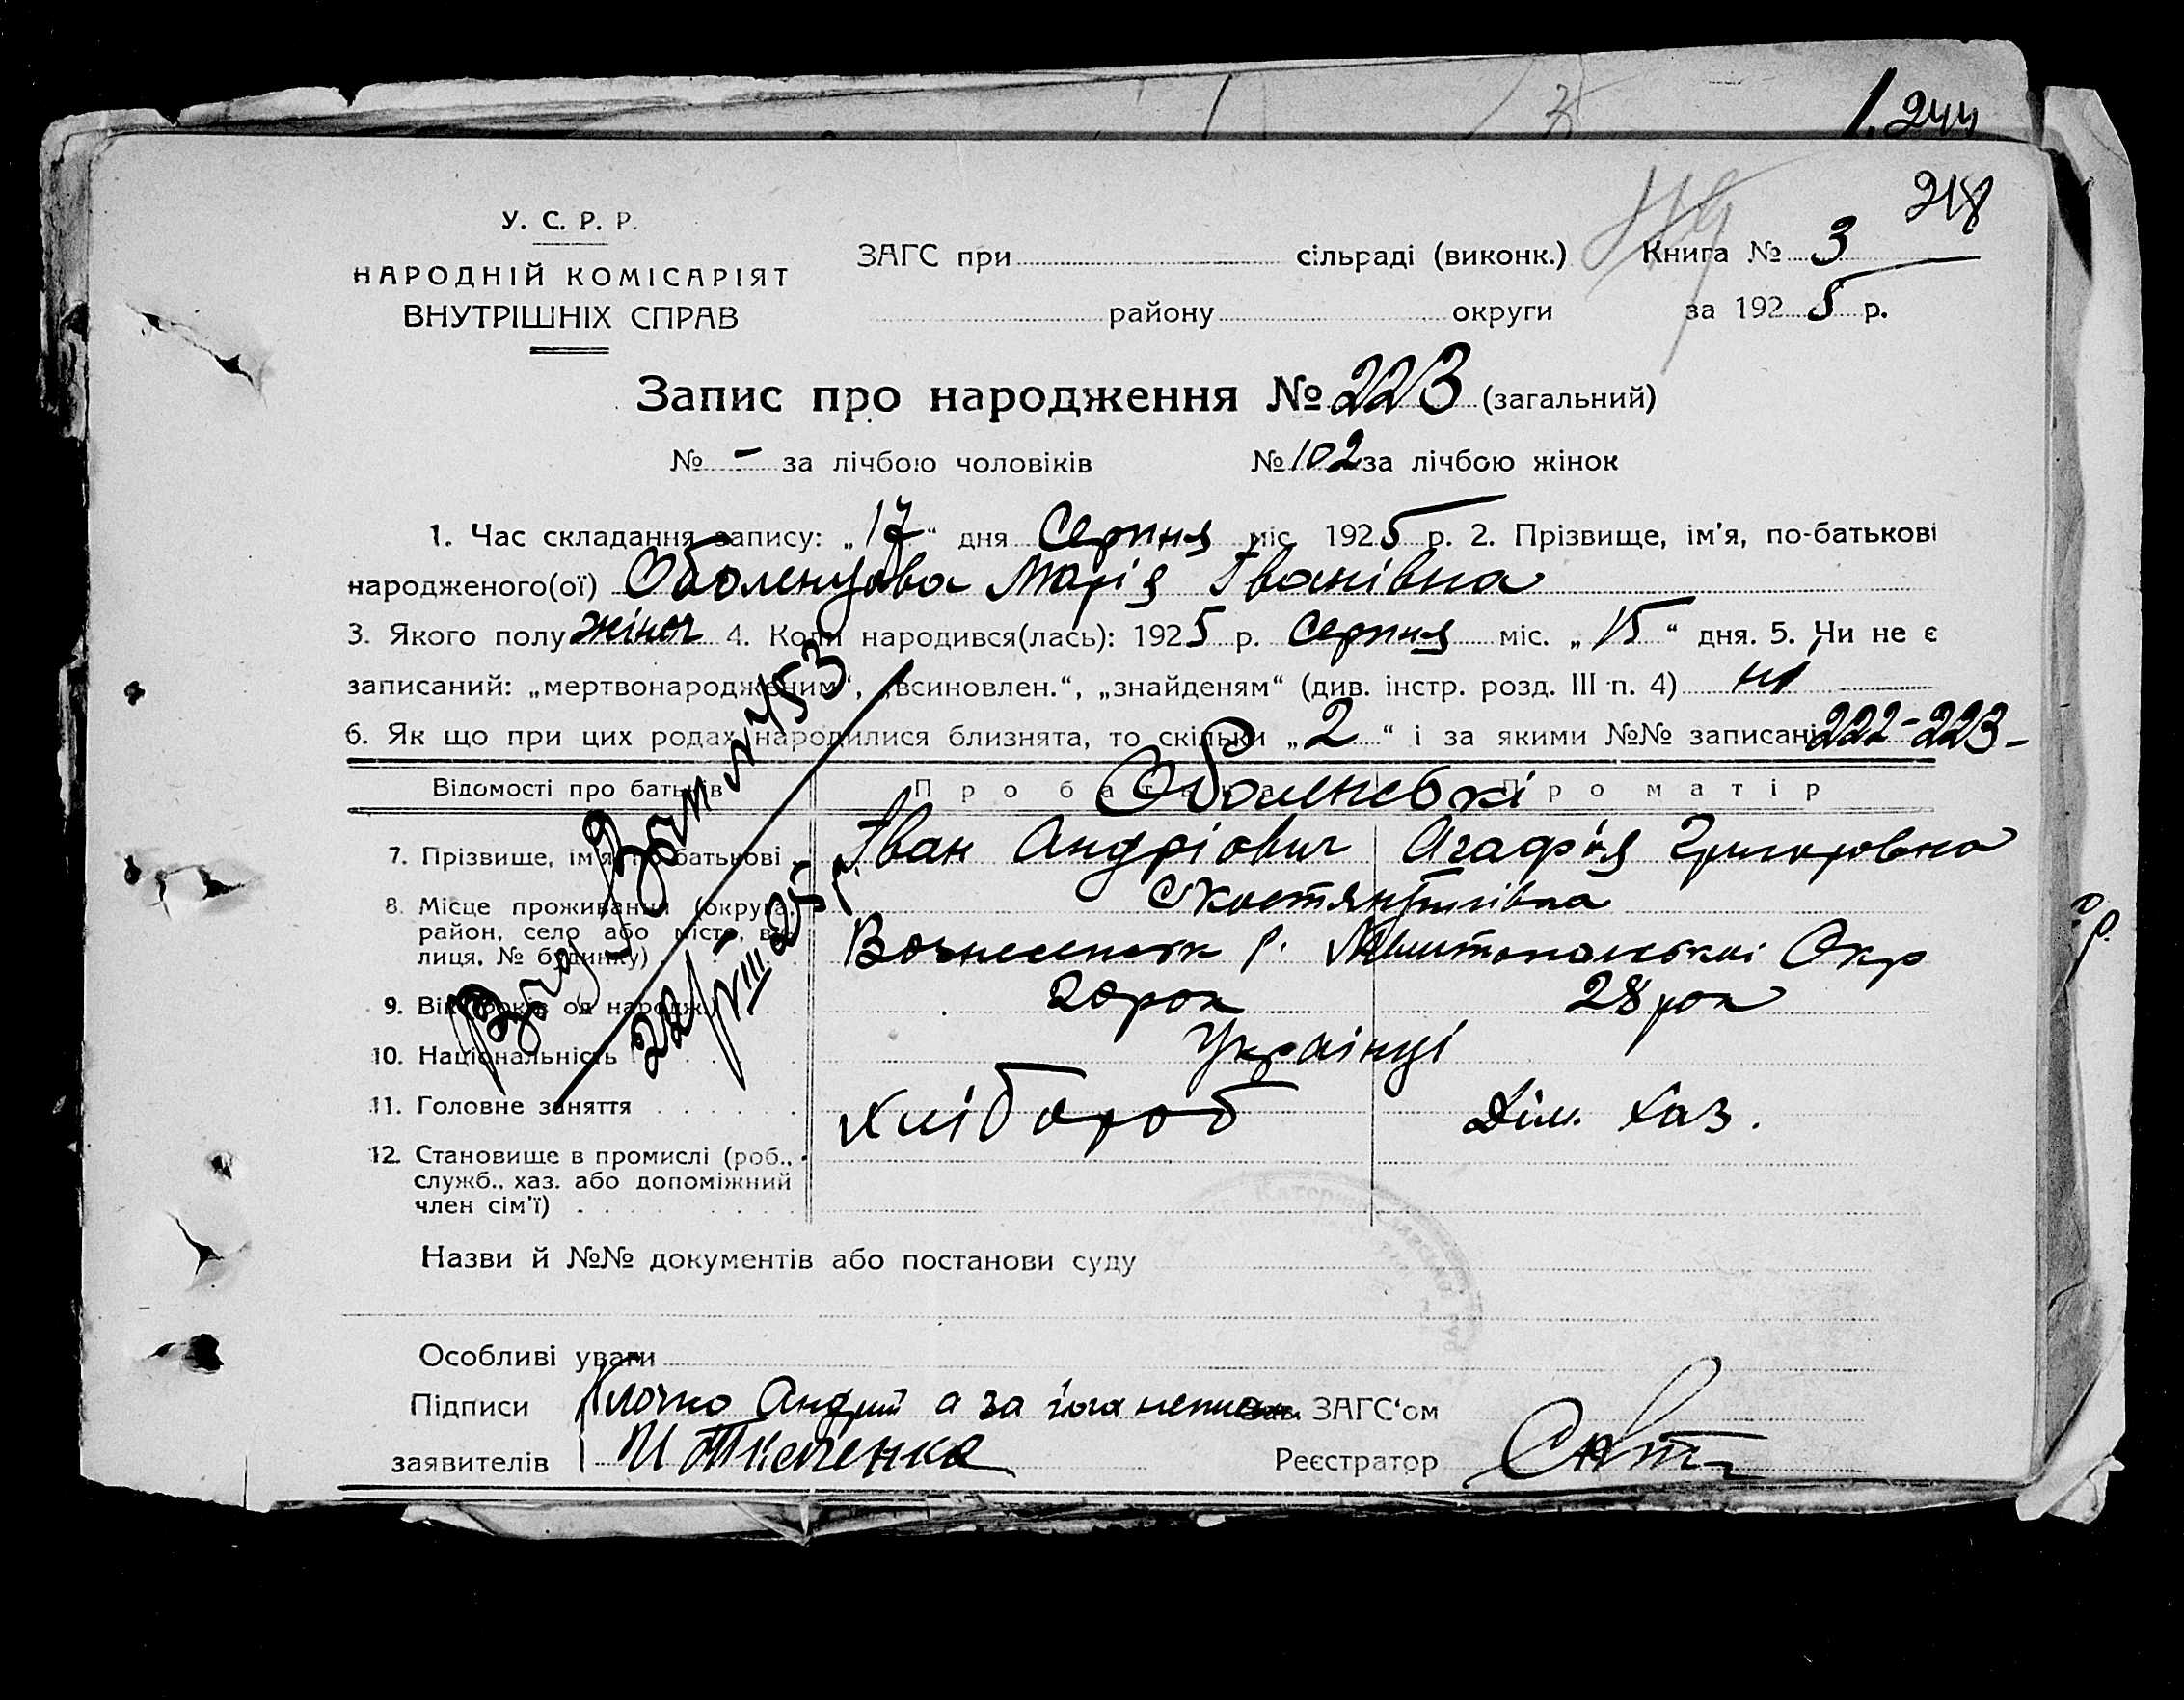 1.244
218
119
У. С. Р. Р.
НАРОДНІЙ КОМІСАРІЯТ
ВНУТРІШНІХ СПРАВ
ЗАГС при сільраді (виконк.) Книга № 3
району округи за 1925 р.
Запис про народження № 223 (загальний)
№ - за лічбою чоловіків № 102 за лічбою жінок
1. Час складання запису: „17“ дня Серпня міс 1925 р. 2. Прізвище, ім'я, по-батькові
народженого(ої) Марія Іванівна
3. Якого полу жіноч 4. Коли народився(лась): 1925 р. Серпня міс. „15“ дня. 5. Чи не є
записаний: „мертвонародженим“, „всиновлен.“, „знайденям“ (див. інстр. розд. III п. 4) ні
6. Як що при цих родах народилися близнята, то скільки „2“ і за якими №№ записані 222-223-
Відомості про батьків Про батька Про матір
Оболенські
7. Прізвище, ім'я, по батькові Іван Андріович Агафія Григоровна
8. Місце проживання (округа, район, село або місто, вулиця, № будинку)
Вознесенськ р. Окр
9. Вік (років од народж.) 28 рок
10. Національність Українці
11. Головне заняття хлібороб Дім. хаз.
12. Становище в промислі (роб., служб., хаз. або допоміжний член сім'ї)
№ 753
22/VIII-25 р.
Назви й №№ документів або постанови суду
Особливі уваги
Підписи Клочко Андрій а за його неписьм. Зав. ЗАГС'ом
заявителів Реєстратор